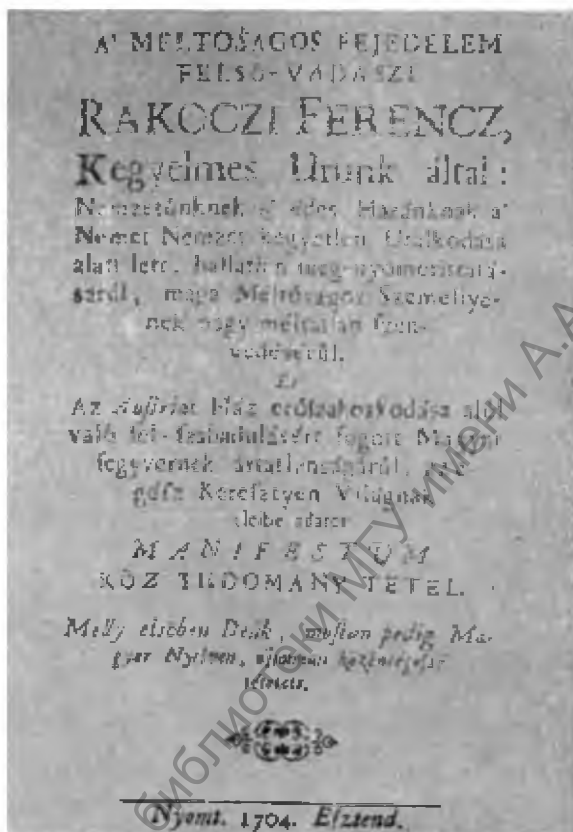 A' MELTOSAGOS FEJEDELEM
FELSÖ-VADASZI
RAKOCZI FERENCZ,
Kegyelmes Urunk által:
Nemzetünknek s' édes Hazánknak a'
Német Nemzet kegyetlen Uralkodása
alatt lett, hallatlan meg-nyomorittatá-
sáról, maga Méltóságos Személlyé-
nek nagy méltatlan szen-
vedésérül.
És
Az Austriai Ház erőszakoskodása alól
való fel-szabadulásért fogott Magyar
fegyvernek ártatlanságáról, az
gész Keresztyen Világnak
eleibe adatot
MANIFESTUM
KÖZ TUDOMANY TETEL.
Melly elsőben Deák, mostan pedig Ma-
gyar Nyelven,
Nyomt. 1704. Esztend.
библиотеки МГУ имени А.А.